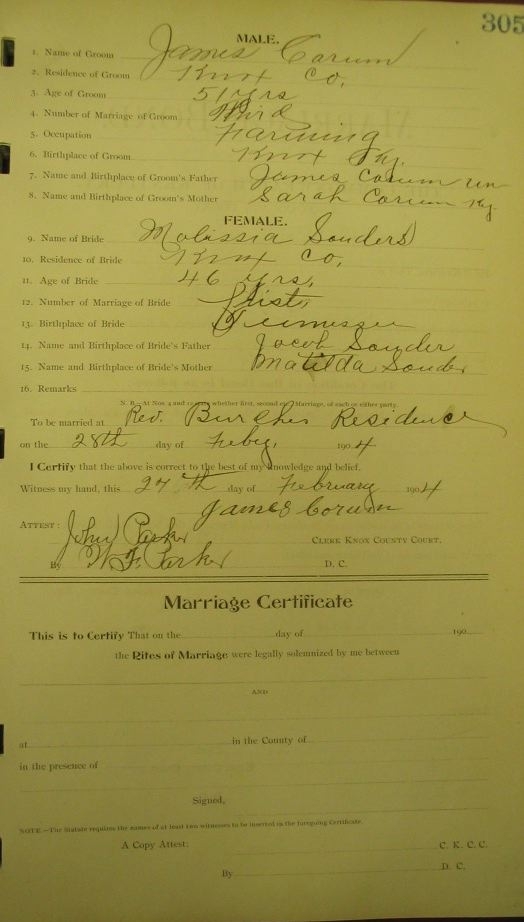 305
MALE.
1. Name of Groom James Corum
2. Residence of Groom Knox Co,
3. Age of Groom 51 yrs
4. Number of Marriage of Groom Third
5. Occupation Farming
6. Birthplace of Groom. Knox Ky.
7. Name and Birthplace of Groom's Father James Corum
8. Name and Birthplace of Groom's Mother Sarah Corum Ky
FEMALE.
9. Name of Bride Malissia Souders
10. Residence of Bride Knox Co,
11. Age of Bride 46 yrs,
12. Number of Marriage of Bride first
13. Birthplace of Bride Tennessee
14. Name and Birthplace of Bride's Father Jacob Souder
15. Name and Birthplace of Bride's Mother Matilda Souder
16. Remarks
N. B.—At Nos. 4 and 12 state whether first, second etc. Marriage, of each or either party.
To be married at Rev. Burches Residence
on the 28th day of Feby, 1904
I Certify that the above is correct to the best of my knowledge and belief.
Witness my hand, this 27th day of February 1904
James Corum
ATTEST:
John Parker
CLERK KNOX COUNTY COURT.
By W. F. Parker D. C.
Marriage Certificate
This is to Certify That on the day of 190
the Rites of Marriage were legally solemnized by me between
AND
at in the County of
in the presence of
Signed,
NOTE.—The Statute requires the names of at least two witnesses to be inserted in the foregoing Certificate.
A Copy Attest: C. K. C. C.
By D. C.